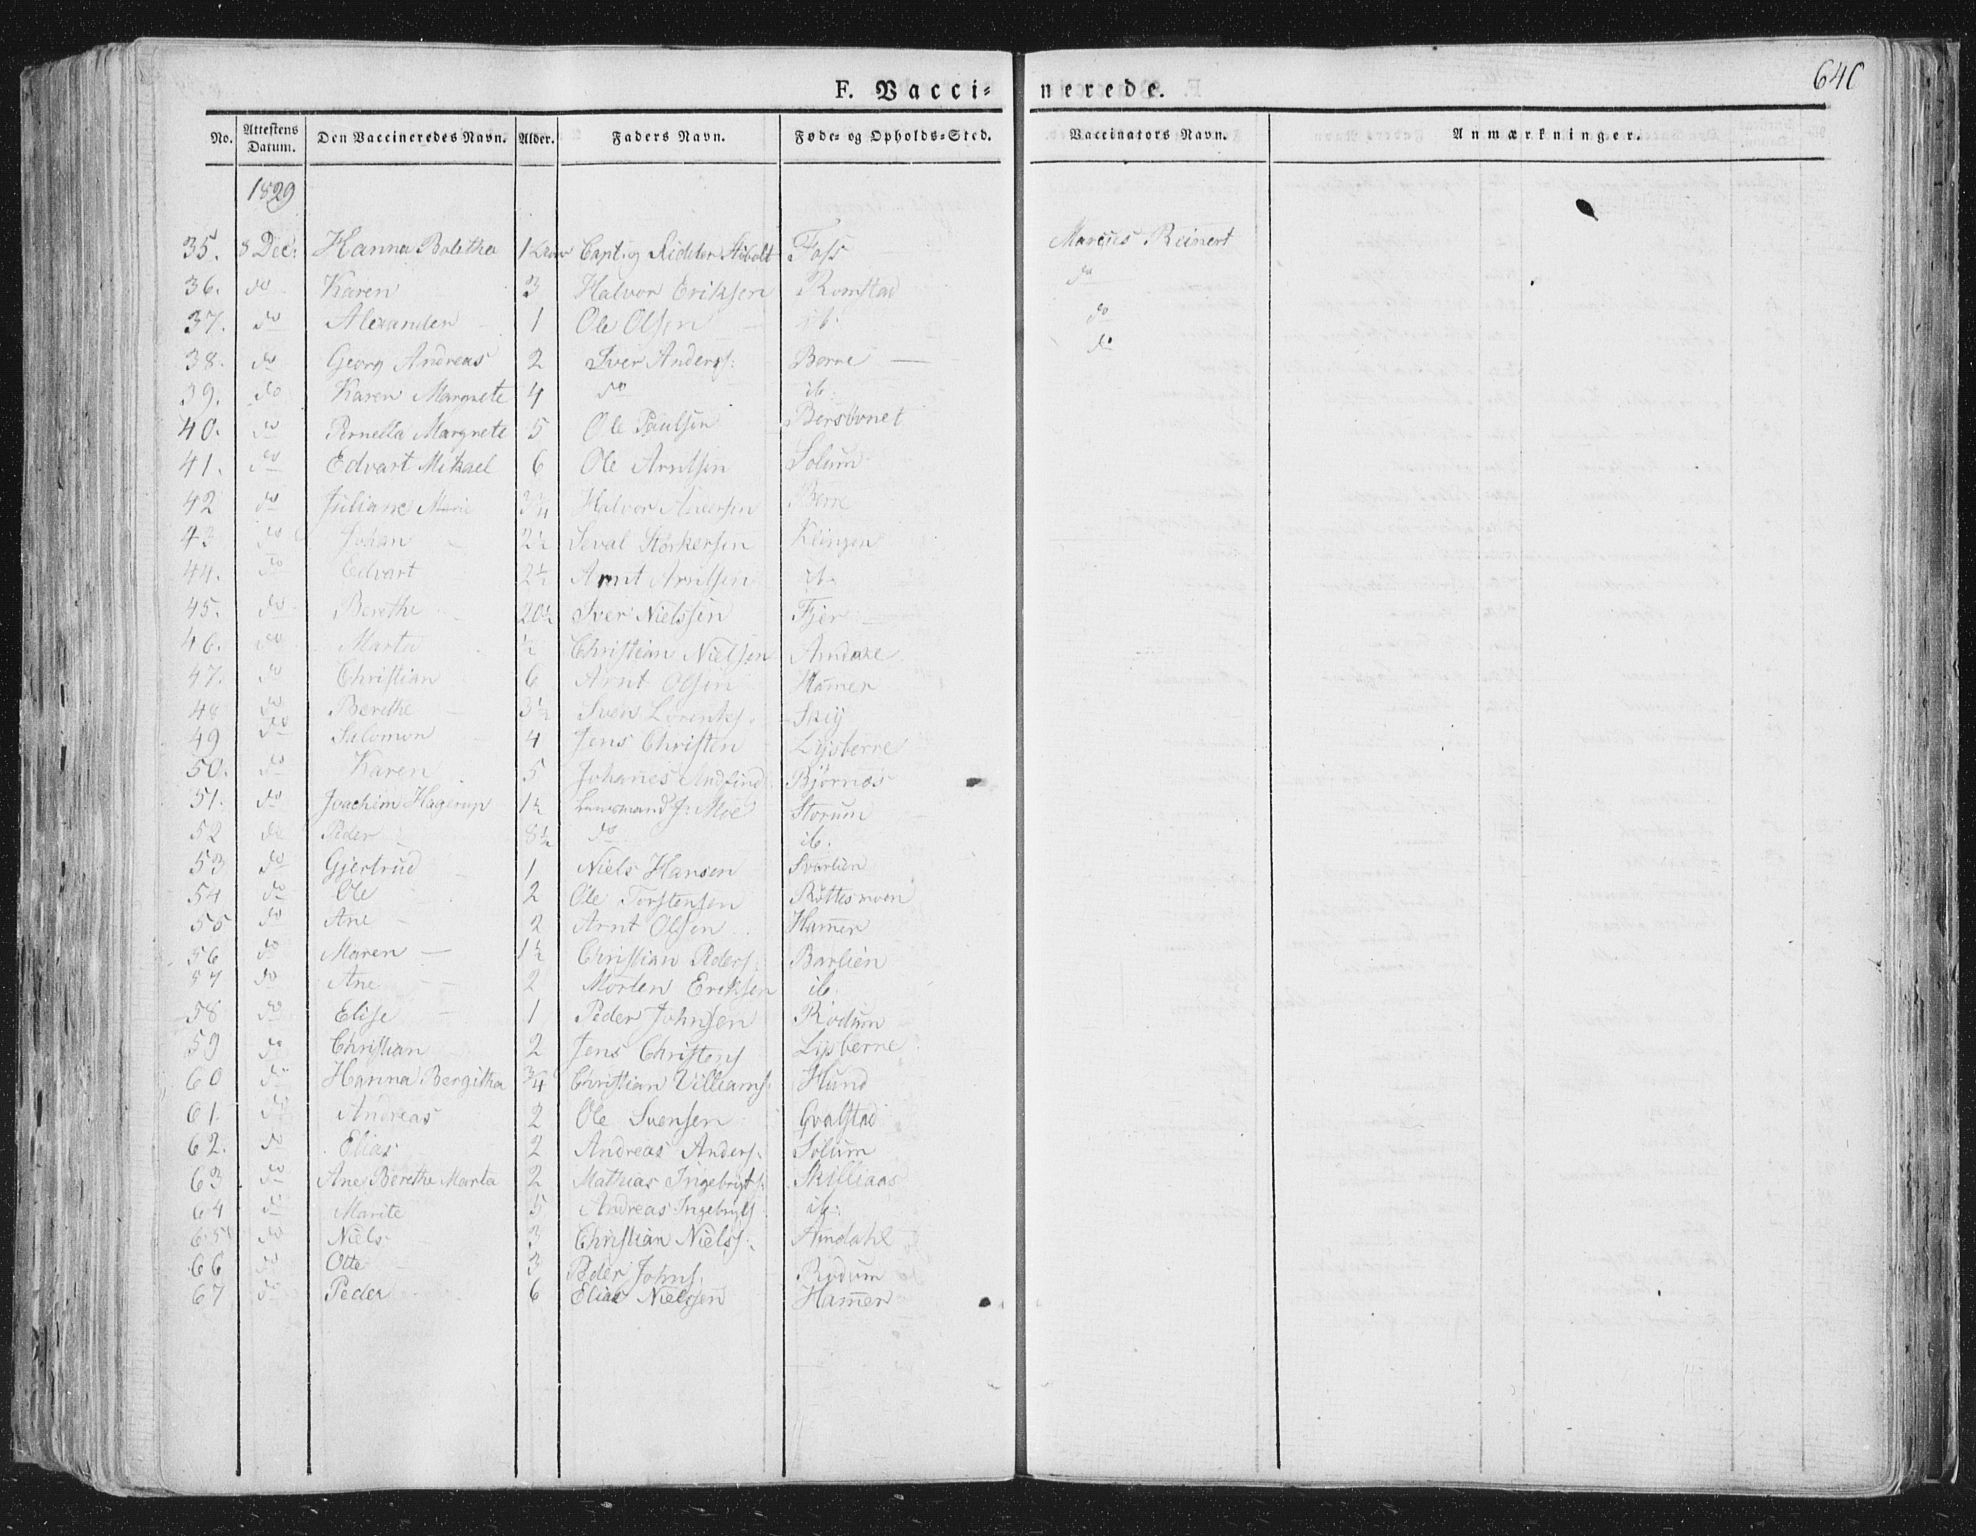 640
F. Vacci= nerede.
No. Attestens Datum. Den Vaccineredes Navn. Alder. Faders Navn. Føde= og Opholds=Sted. Vaccinators Navn. Anmærkninger.
1829
35. 8 Dec: Hanna Boletha 1 Capt. og Ridder Stibolt Foss Marcus Reinert
36. do Karen 3 Halvor Eriksen Romstad do
37. do Alexander 1 Ole Olsen ib. do
38. do Georg Andreas 2 Iver Anders: Borre do
39. do Karen Margrete 4 do ib.
40. do Pernella Margrete 5 Ole Paulsen Bersøvnet
41. do Edvart Mikael 6 Ole Arntsen Solum
42 do Juliane Marie 3/4 Halvor Andersen Berre
43 do Johan 2½ Seval Størkersen Klingen
44. do Edvart 2½ Arnt Arntsen ib.
45. do Berethe 20½ Iver Nielssen Fjer
46. do Marta ½ Christian Nielsen Amdahl
47. do Christian 6 Arnt Olsen Hamer
48 do Berethe 3½ Sven Lorents. Skij
49 do Salomon 4 Jens Christen Lijsberre
50. do Karen 5 Johanes Andfind Bjørnos
51. do Joachim Hagerup 1½ Lensmand J: Moe Storum
52 do Peder 8½ do ib.
53 do Gjertrud 1 Niels Hansen Svarlien
54 do Ole 2 Ole Torstensen Røttesmoen
55 do Ane 2 Arnt Olsen Hamer
56 do Maren 1½ Christian Peders. Barlien
57 do Ane 2 Morten Eriksen ib.
58 do Elise 1 Peder Johnsen Rødum
59 do Christian 2 Jens Christens Lijsberre
60 do Hanna Bergitha 3/4 Christian Villiams. Hund
61. do Andreas 2 Ole Svensen Gvalstad
62. do Elias 2 Andreas Anders. Solum
63 do Ane Berethe Marta 2 Mathias Ingebrigts. Skilliaas
64 do Marite 5 Andreas Ingebrigts ib.
65 do Niels 3 Christian Niels. Amdahl
66 do Otte 3 Peder Johns. Rødum
67 do Peder 6 Elias Nielssen Hamer